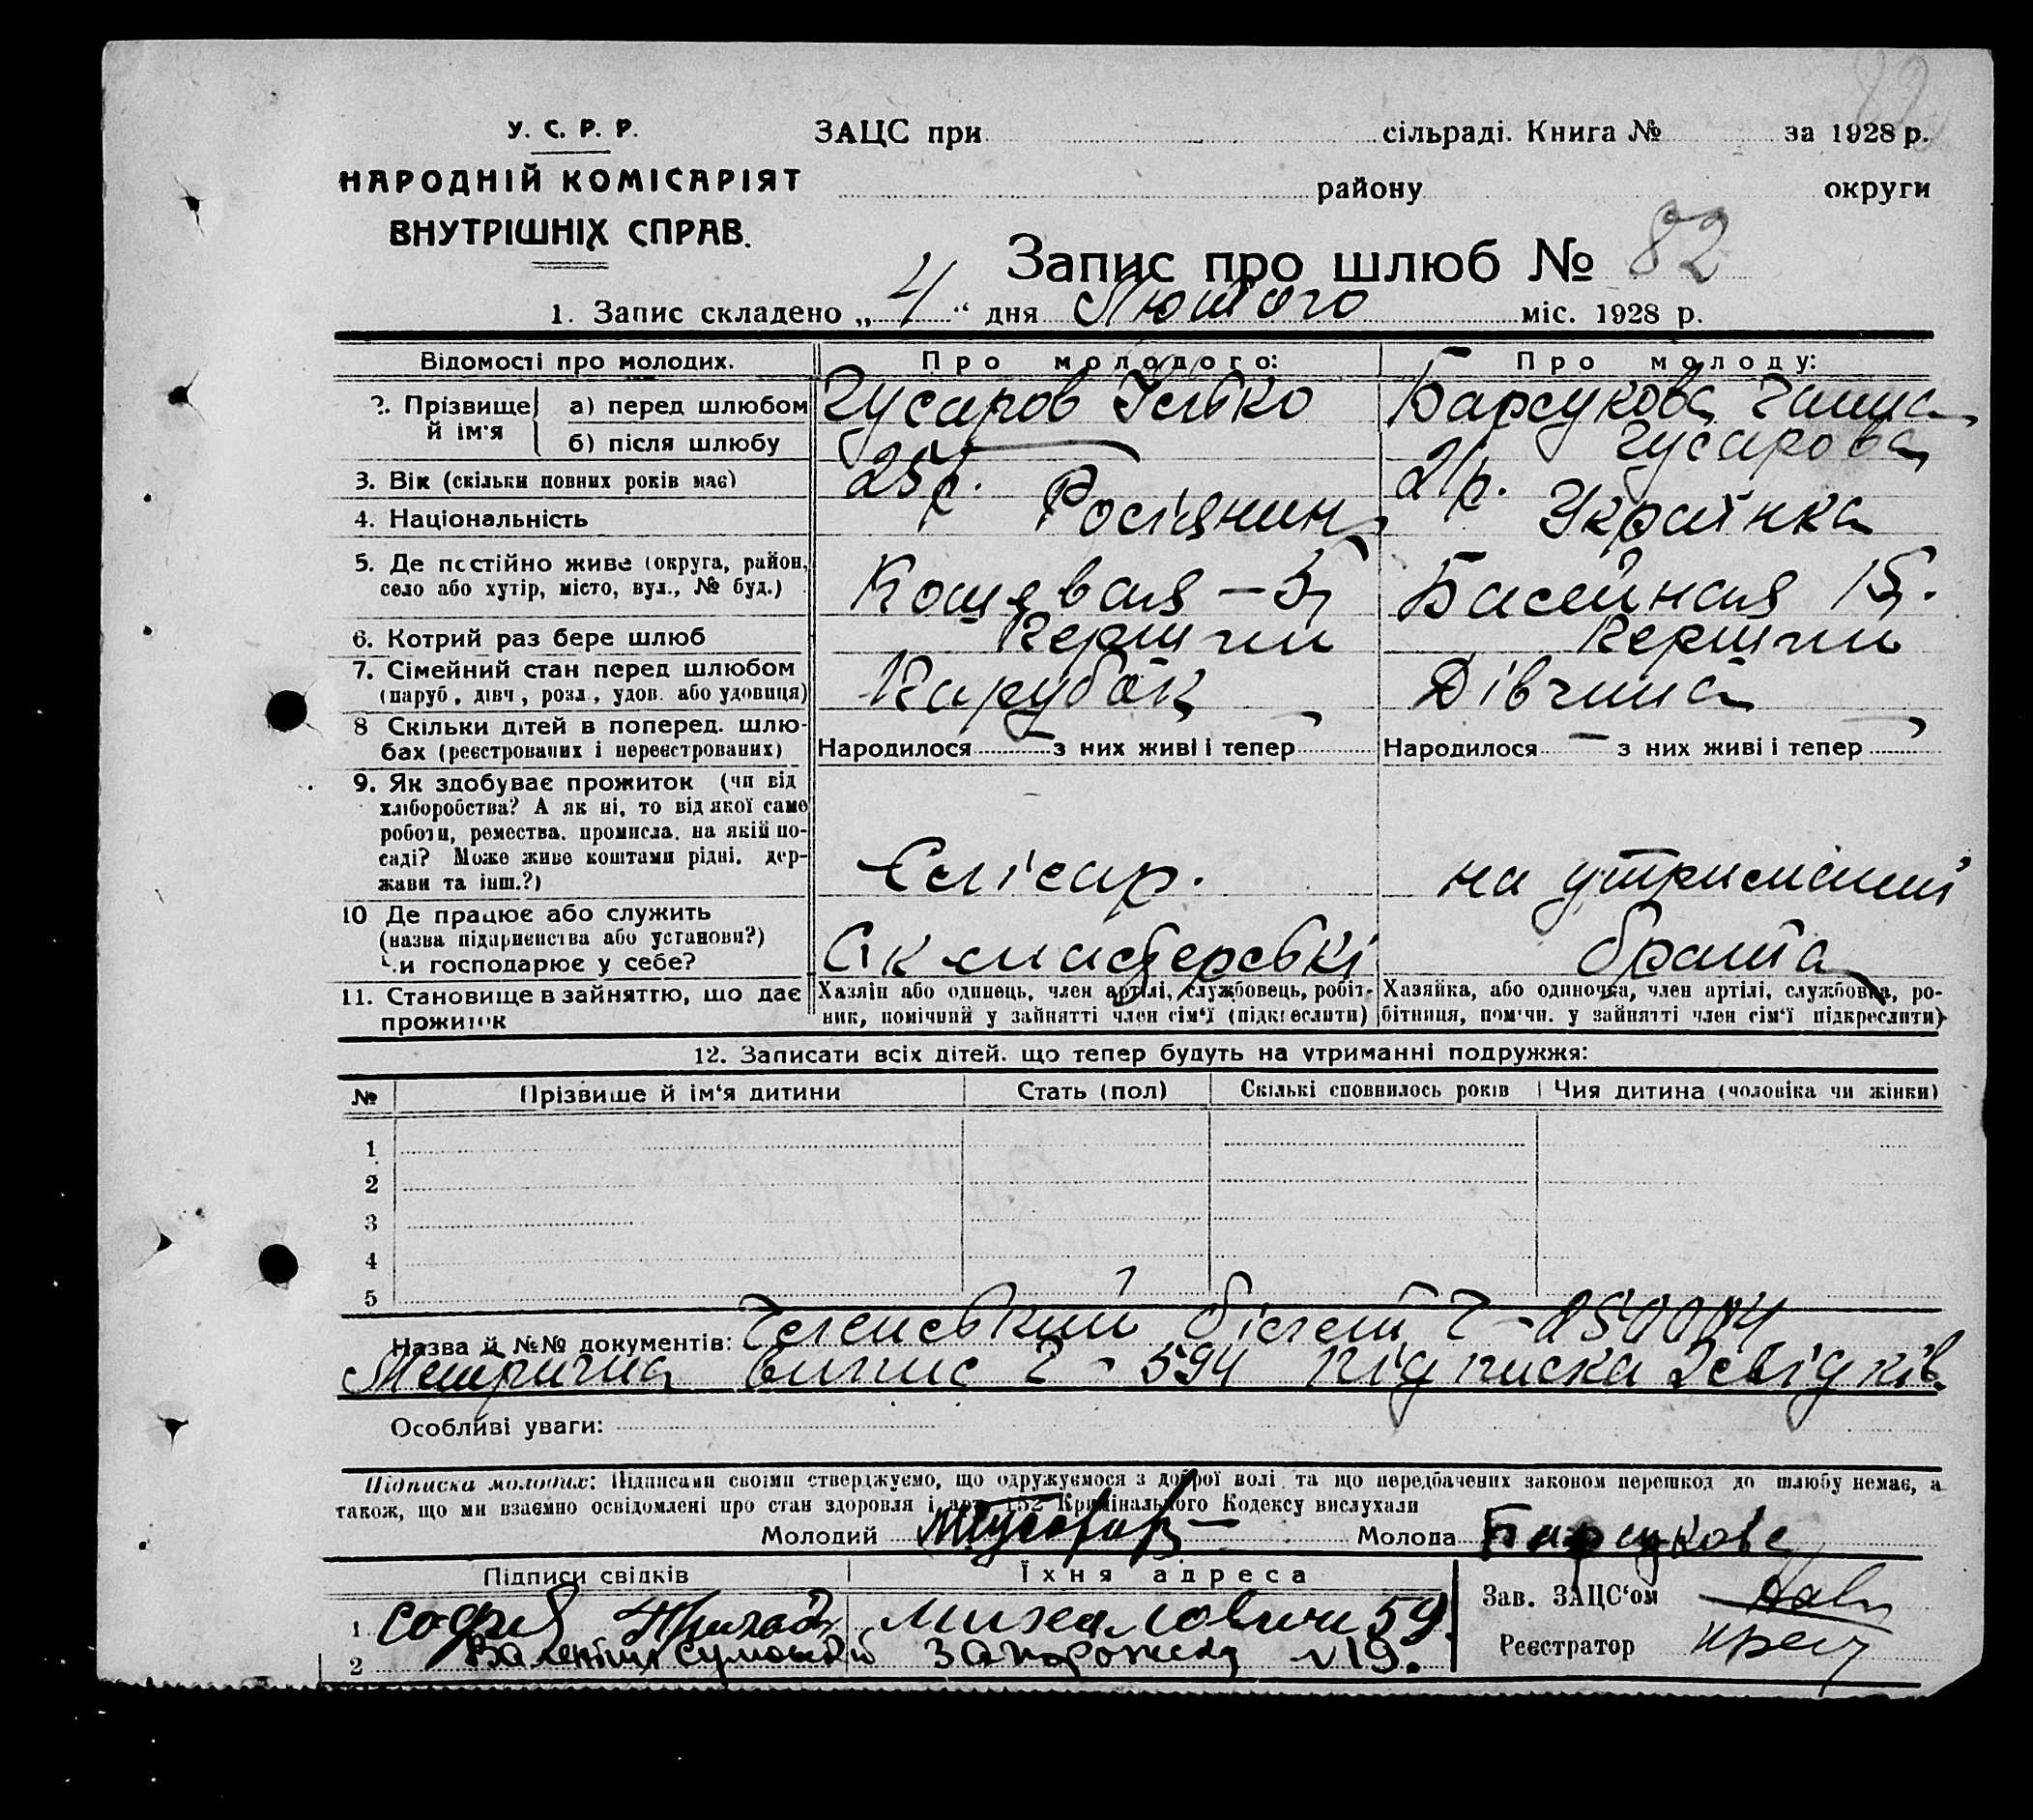 82
У. С. Р. Р.
НАРОДНІЙ КОМІСАРІЯТ
ВНУТРІШНІХ СПРАВ.
ЗАЦС при сільраді. Книга № за 1928 р.
району округи
Запис про шлюб № 82
1. Запис складено „4“ дня Лютого міс. 1928 р.
Відомості про молодих. Про молодого: Про молоду:
2. Прізвище й ім'я
а) перед шлюбом Гусаров Барсукова Ганна
б) після шлюбу Гусарова
3. Вік (скільки повних років має) 25 р. 21 р.
4. Національність Росіянин Українка
5. Де постійно живе (округа, район, село або хутір, місто, вул., № буд.) Кошевая - 5 Басейная 15.
6. Котрий раз бере шлюб Перший Перший
7. Сімейний стан перед шлюбом
(паруб., дівч., розл., удов. або удовиця) Парубок Дівчина
8 Скільки дітей в поперед. шлю-
бах (реєстрованих і нереєстрованих) Народилося — з них живі і тепер Народилося — з них живі і тепер
9. Як здобуває прожиток (чи від
хліборобства? А як ні, то від якої саме
роботи, ремества, промисла, на якій по-
саді? Може живе коштами рідні, дер-
жави та інш.?) Слісар. на утриманні
10 Де працює або служить
(назва підприємства або установи?)
Чи господарює у себе? майстерські брата
11. Становище в зайняттю, що дає
прожиток
Хазяїн або одинець, член артілі, службовець, робіт-
ник, помічний у зайнятті член сім'ї (підкреслити)
Хазяйка, або одиночка, член артілі, службовка, ро-
бітниця, помічн. у зайнятті член сім'ї підкреслити)
12. Записати всіх дітей, що тепер будуть на утриманні подружжя:
№ Прізвище й ім'я дитини Стать (пол) Скількі сповнилось років Чия дитина (чоловіка чи жінки)
1
2
3
4
5
Назва й №№ документів: Членський білет
Метрична випис 594 підписка 2 свідків.
Особливі уваги:
Підписка молодих: Підписами своїми стверджуємо, що одружуємося з доброї волі та що передбачених законом перешкод до шлюбу немає, а
також, що ми взаємно освідомлені про стан здоровля і арт. 152 Кримінального Кодексу вислухали
Молодий Молода Барсукова
Підписи свідків Їхня адреса Зав. ЗАЦС'ом
1 София 59.
2 19. Реєстратор